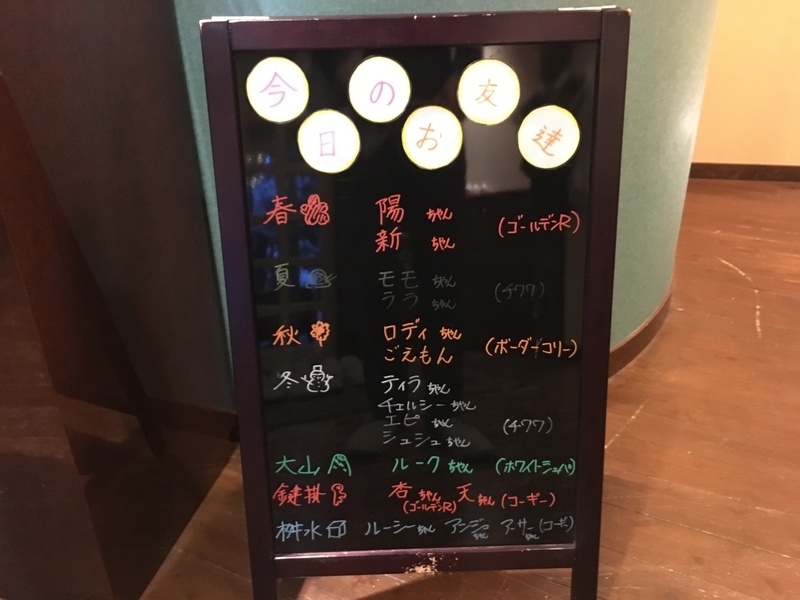 今日のお友達
春 陽 ちゃん (ゴールデンR)
新 ちゃん
夏 モモ ちゃん (チワワ)
ララ ちゃん
秋 ロディ ちゃん (ボーダーコリー)
ごえもん
冬 ティラ ちゃん
チェルシー ちゃん
エピ ちゃん (チワワ)
シュシュ ちゃん
大山 ルーク ちゃん (ホワイトシェパ)
鍵掛 杏 ちゃん (ゴールデンR) 天 ちゃん (コーギー)
桝水 ルーシー ちゃん アンジュ ちゃん アーサー ちゃん